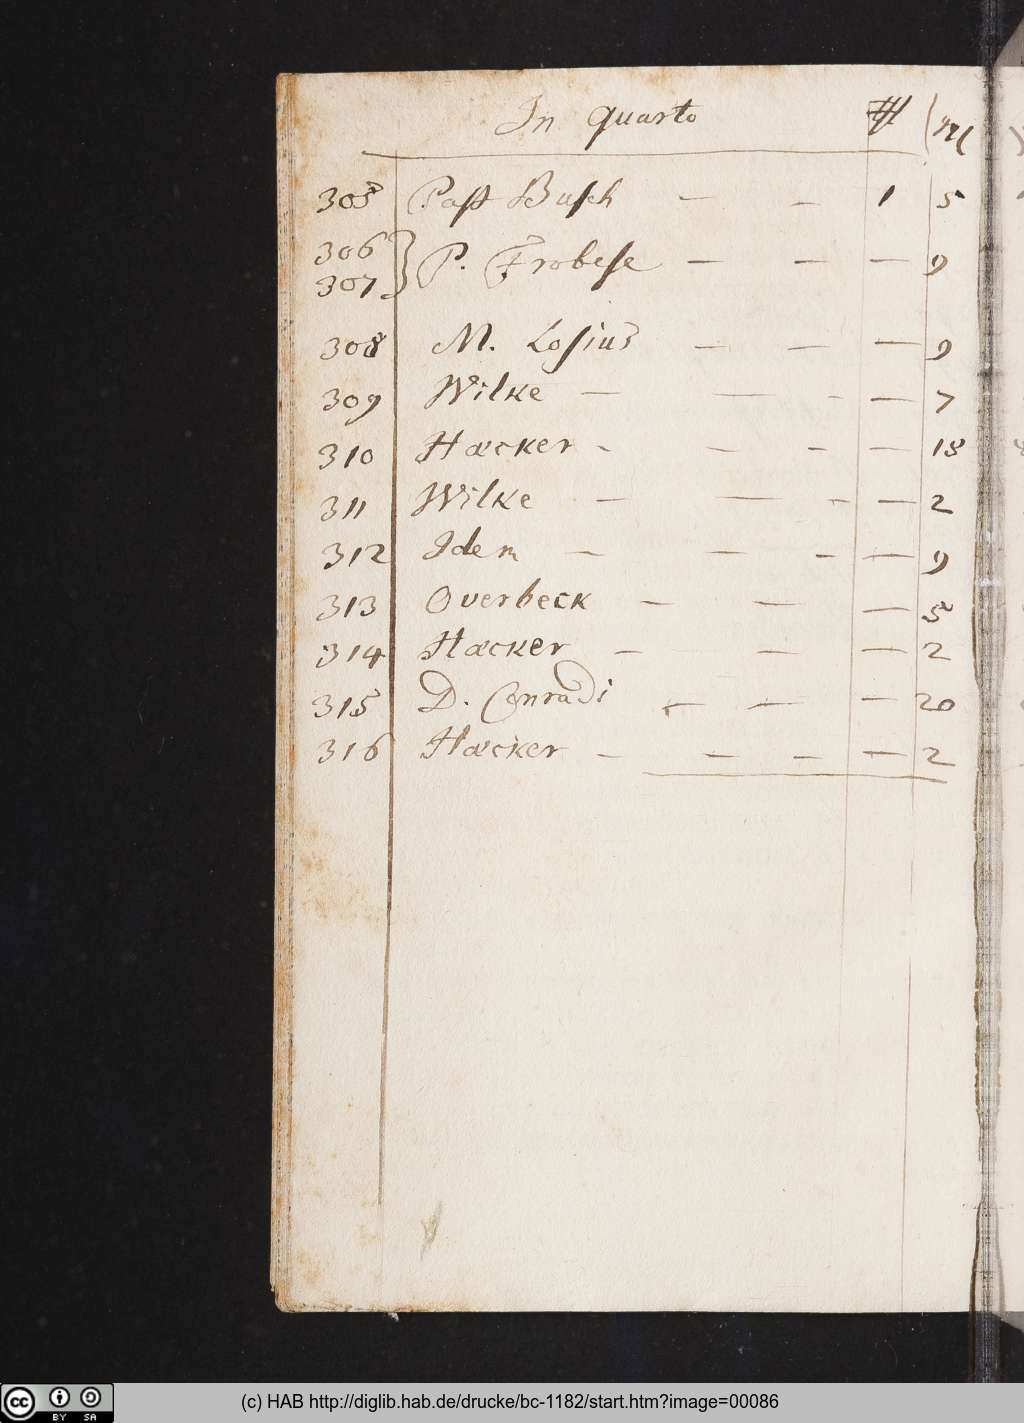 In quarto
305 Past Busch — — 1 5
306
307 } P. Frobese — — — 9
308 M. Losius — — — 9
309 Wilke — — - — 7
310 Hæcker - — - — 18
311 Wilke — — - — 2
312 Idem — — - — 9
313 Overbeck — — — 5
314 Hæcker — — — 2
315 D. Conradi — — — 20
316 Hæcker — — — — 2
(c) HAB http://diglib.hab.de/drucke/bc-1182/start.htm?image=00086
cc BY SA